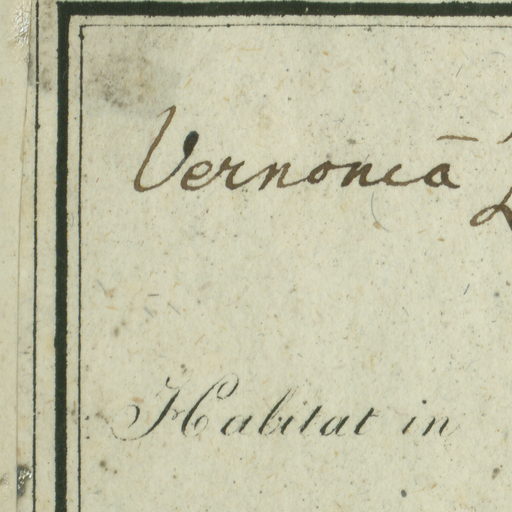 Vernonia
Habitat in